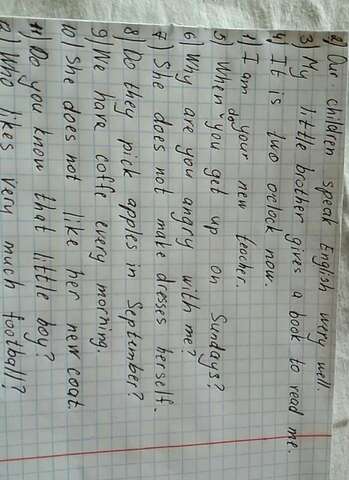 2) Our children speak English wery well.
3) My little brother gives a book to read me.
4) It is two oclock now.
1) I am your new teacher.
5) When do you get up on Sundays?
6) Why are you angry with me?
7) She does not make dresses herself.
8) Do they pick apples in September?
9) We have coffe every morning.
10) She does not like her new coat.
11) Do you know that little boy?
Who likes very much football?